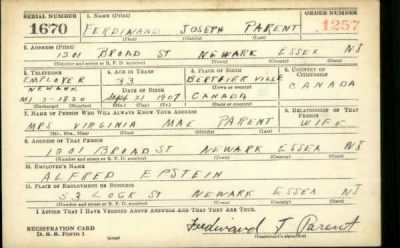 SERIAL NUMBER 1. NAME (Print) ORDER NUMBER
1670 FERDINAND JOSEPH PARENT 1257
(First) (Middle) (Last)
2. ADDRESS (Print)
1201 BROAD ST NEWARK ESSEX NJ
(Number and street or R. F. D. number) (Town) (County) (State)
3. TELEPHONE 4. AGE IN YEARS 5. PLACE OF BIRTH 6. COUNTRY OF CITIZENSHIP
EMPLOYER 33 BERTHIER VILLE
NEWARK DATE OF BIRTH CANADA
MI 3-1820 Sept 21 1907 CANADA
(Exchange) (Number) (Mo.) (Day) (Yr.) (State or country)
7. NAME OF PERSON WHO WILL ALWAYS KNOW YOUR ADDRESS 8. RELATIONSHIP OF THAT PERSON
MRS VIRGINIA MAE PARENT WIFE
(Mr., Mrs., Miss) (First) (Middle) (Last)
9. ADDRESS OF THAT PERSON
1201 BROAD ST NEWARK ESSEX NJ
(Number and street or R. F. D. number) (Town) (County) (State)
10. EMPLOYER'S NAME
ALFRED EPSTEIN
11. PLACE OF EMPLOYMENT OR BUSINESS
53 LOCK ST NEWARK ESSEX NJ
(Number and street or R. F. D. number) (Town) (County) (State)
I AFFIRM THAT I HAVE VERIFIED ABOVE ANSWERS AND THAT THEY ARE TRUE.
REGISTRATION CARD
D. S. S. Form 1 Ferdinand J Parent
(Registrant's signature)